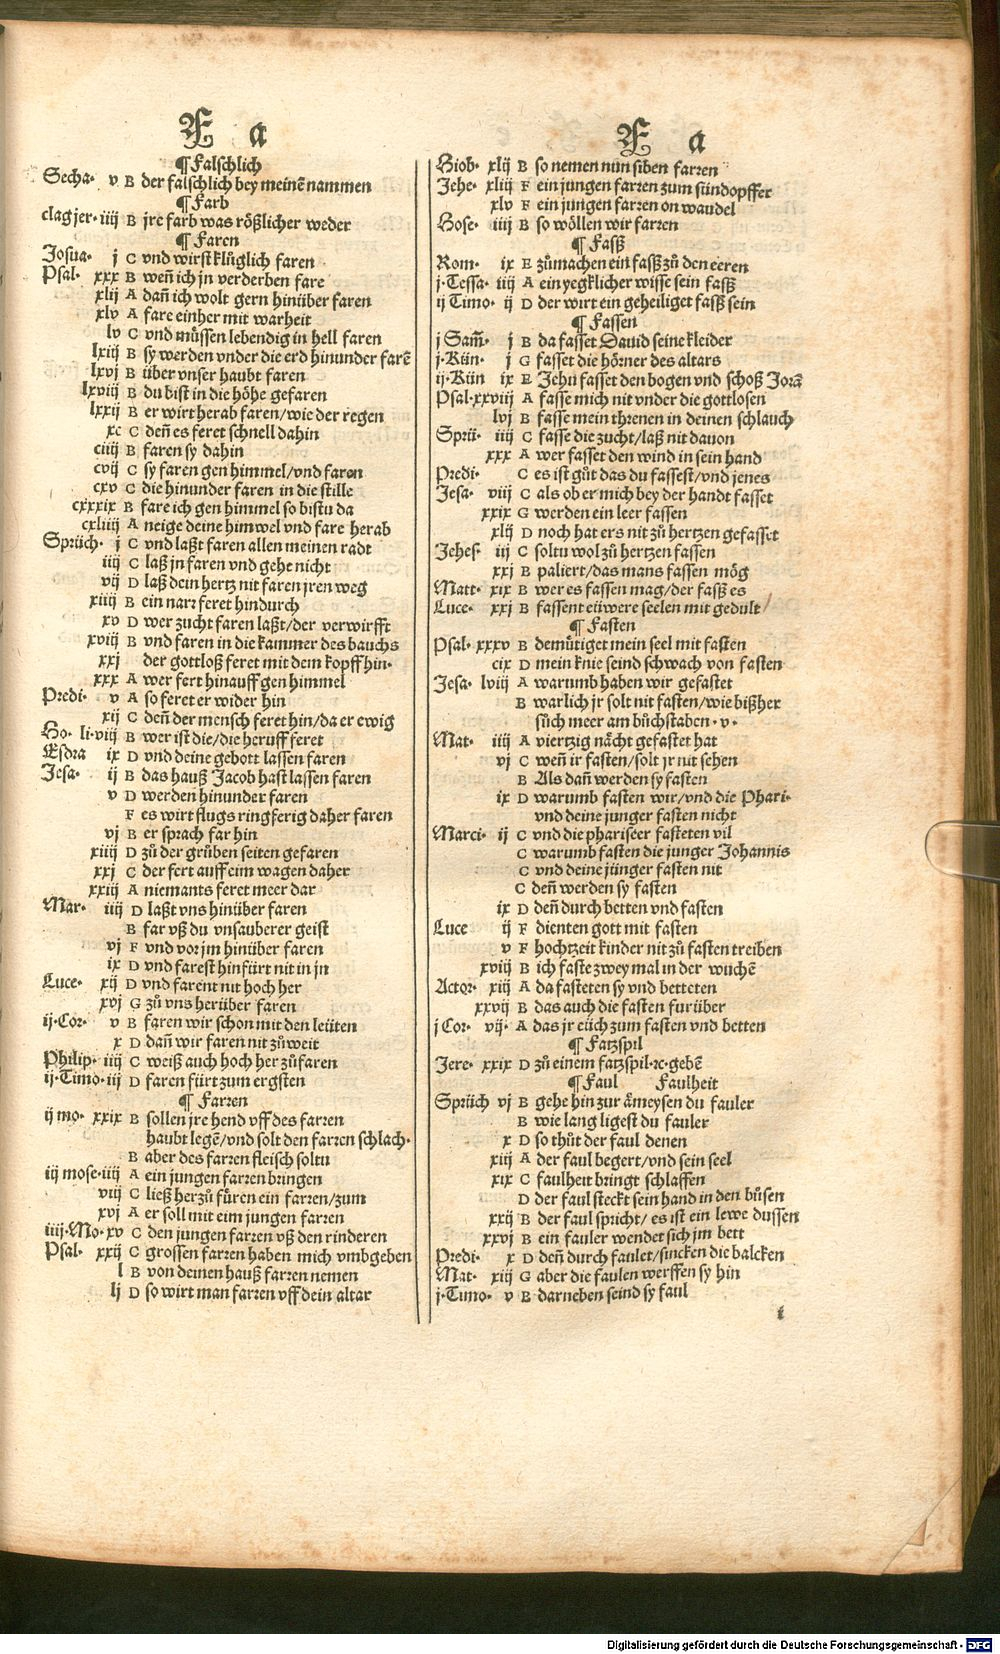 F a
¶ Falschlich
Secha· v B der falschlich bey meinē nammen
¶ Farb
clag jer· iiij B jre farb was rößlicher weder
¶ Faren
Josua· j C vnd wirst klůglich faren
Psal· xxx B wen̄ ich jn verderben fare
xlij A dan̄ ich wolt gern hinüber faren
xlv A fare einher mit warheit
lv C vnd müssen lebendig in hell faren
lxiij B sy werden vnder die erd hinunder farē
lxvj B über vnser haubt faren
lxviij B du bist in die höhe gefaren
lxxij B er wirt herab faren/wie der regen
xc C den̄ es feret schnell dahin
ciiij B faren sy dahin
cvij C sy faren gen himmel/vnd faren
cxv C die hinunder faren in die stille
cxxxix B fare ich gen himmel so bistu da
cxliiij A neige deine himwel vnd fare herab
Sprüch· j C vnd laßt faren allen meinen radt
iiij C laß jn faren vnd gehe nicht
vij D laß dein hertz nit faren jren weg
xiiij B ein narr feret hindurch
xv D wer zucht faren laßt/der verwirfft
xviij B vnd faren in die kammer des bauchs
xxj der gottloß feret mit dem kopff hin·
xxx A wer fert hinauff gen himmel
Predi· v A so feret er wider hin
xij C den̄ der mensch feret hin/da er ewig
Ho· li·viij B wer ist die/die heruff feret
Esdra ix D vnd deine gebott lassen faren
Jesa· ij B das hauß Jacob hast lassen faren
v D werden hinunder faren
F es wirt flugs ringferig daher faren
vj B er sprach far hin
xiiij D zů der grůben seiten gefaren
xxj C der fert auff eim wagen daher
xxiij A niemants feret meer dar
Mar· iiij D laßt vns hinüber faren
B far vß du vnsauberer geist
vj F vnd vor jm hinüber faren
ix D vnd farest hinfürt nit in jn
Luce· xij D vnd farent nit hoch her
xvj G zů vns herüber faren
ij·Cor· v B faren wir schon mit den leüten
x D dan̄ wir faren nit zů weit
Philip· iiij C weiß auch hoch her zůfaren
ij·Timo· iij D faren fürt zum ergsten
¶ Farren
ij mo· xxix B sollen jre hend vff des farren
haubt legē/vnd solt den farren schlach·
B aber des farren fleisch soltu
iij mose· iiij A ein jungen farren bringen
viij C ließ herzů fůren ein farren/zum
xvj A er soll mit eim jungen farren
iiij·Mo· xv C den jungen farren vß den rinderen
Psal· xxij C grossen farren haben mich vmbgeben
l B von deinen hauß farren nemen
lj D so wirt man farren vff dein altar
F a
Hiob· xlij B so nemen nun siben farren
Jehe· xliij F ein jungen farren zum sündopffer
xlv F ein jungen farren on wandel
Hose· iiij B so wöllen wir farren
¶ Faß
Rom· ix E zůmachen ein faß zů den eeren
j·Tessa· iiij A ein yegklicher wisse sein faß
ij Timo· ij D der wirt ein geheiliget faß sein
¶ Fassen
j Sam̄· j B da fasset Dauid seine kleider
j·Kün· j G fasset die hörner des altars
ij·Kün ix E Jehu fasset den bogen vnd schoß Jorā
Psal· xxviij A fasse mich nit vnder die gottlosen
lvj B fasse mein threnen in deinen schlauch
Sprü· iiij C fasse die zucht/laß nit dauon
xxx A wer fasset den wind in sein hand
Predi· C es ist gůt das du fassest/vnd jenes
Jesa· viij C als ob er mich bey der handt fasset
xxix G werden ein leer fassen
xlij D noch hat ers nit zů hertzen gefasset
Jehes· iij C soltu wol zů hertzen fassen
xxj B paliert/das mans fassen mög
Matt· xix B wer es fassen mag/der faß es
Luce· xxj B fassent eüwere seelen mit gedult
¶ Fasten
Psal· xxxv B demütiget mein seel mit fasten
cix D mein knie seind schwach von fasten
Jesa· lviij A warumb haben wir gefastet
B warlich jr solt nit fasten/wie bißher
sůch meer am bůchstaben · v ·
Mat· iiij A viertzig nächt gefastet hat
vj C wen̄ ir fasten/solt jr nit sehen
B Als dan̄ werden sy fasten
ix D warumb fasten wir/vnd die Phari·
vnd deine junger fasten nicht
Marci· ij C vnd die phariseer fasteten vil
C warumb fasten die junger Johannis
C vnd deine jünger fasten nit
C den̄ werden sy fasten
ix D den̄ durch betten vnd fasten
Luce ij F dienten gott mit fasten
v F hochtzeit kinder nit zů fasten treiben
xviij B ich faste zwey mal in der wuchē
Actor· xiij A da fasteten sy vnd betteten
xxvij B das auch die fasten fur über
j Cor· vij· A das jr eüch zum fasten vnd betten
¶ Fatzspil
Jere· xxix D zů einem fatzspil·ꝛc·gebē
¶ Faul Faulheit
Sprüch vj B gehe hin zur ämeysen du fauler
B wie lang ligest du fauler
x D so thůt der faul denen
xiij A der faul begert/vnd sein seel
xix C faulheit bringt schlaffen
D der faul steckt sein hand in den bůsen
xxij B der faul spricht/ es ist ein lewe dussen
xxvj B ein fauler wender sich jm bett
Predi· x D den̄ durch faulet/sincken die balcken
Mat· xiij G aber die faulen werffen sy hin
j·Timo· v B darneben seind sy faul
Digitalisierung gefördert durch die Deutsche Forschungsgemeinschaft - DFG